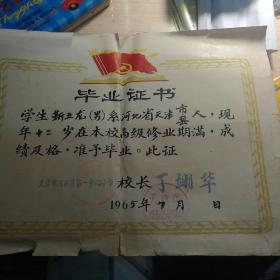 毕业证书
学生靳立龙(男)系河北省天津市县人,现
年十二岁在本校高级修业期满,成
绩及格,准予毕业。此证
校长 丁翊华
1965年7月 日